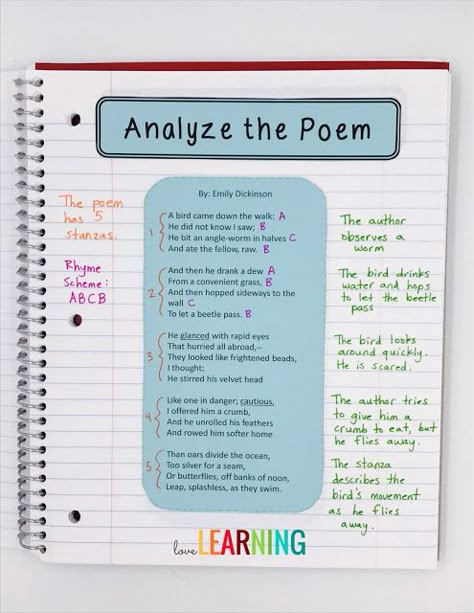 Analyze the Poem
By: Emily Dickinson
The poem
has 5
stanzas.
Rhyme
Scheme:
ABCB
1
A bird came down the walk: A
He did not know I saw; B
He bit an angle-worm in halves C
And ate the fellow, raw. B
2
And then he drank a dew A
From a convenient grass, B
And then hopped sideways to the
wall C
To let a beetle pass. B
3
He glanced with rapid eyes
That hurried all abroad,--
They looked like frightened beads,
I thought;
He stirred his velvet head
4
Like one in danger; cautious,
I offered him a crumb,
And he unrolled his feathers
And rowed him softer home
5
Than oars divide the ocean,
Too silver for a seam,
Or butterflies, off banks of noon,
Leap, splashless, as they swim.
The author
observes a
worm
The bird drinks
water and hops
to let the beetle
pass
The bird looks
around quickly.
He is scared.
The author tries
to give him a
crumb to eat, but
he flies away.
The stanza
describes the
bird's movement
as he flies
away.
love LEARNING